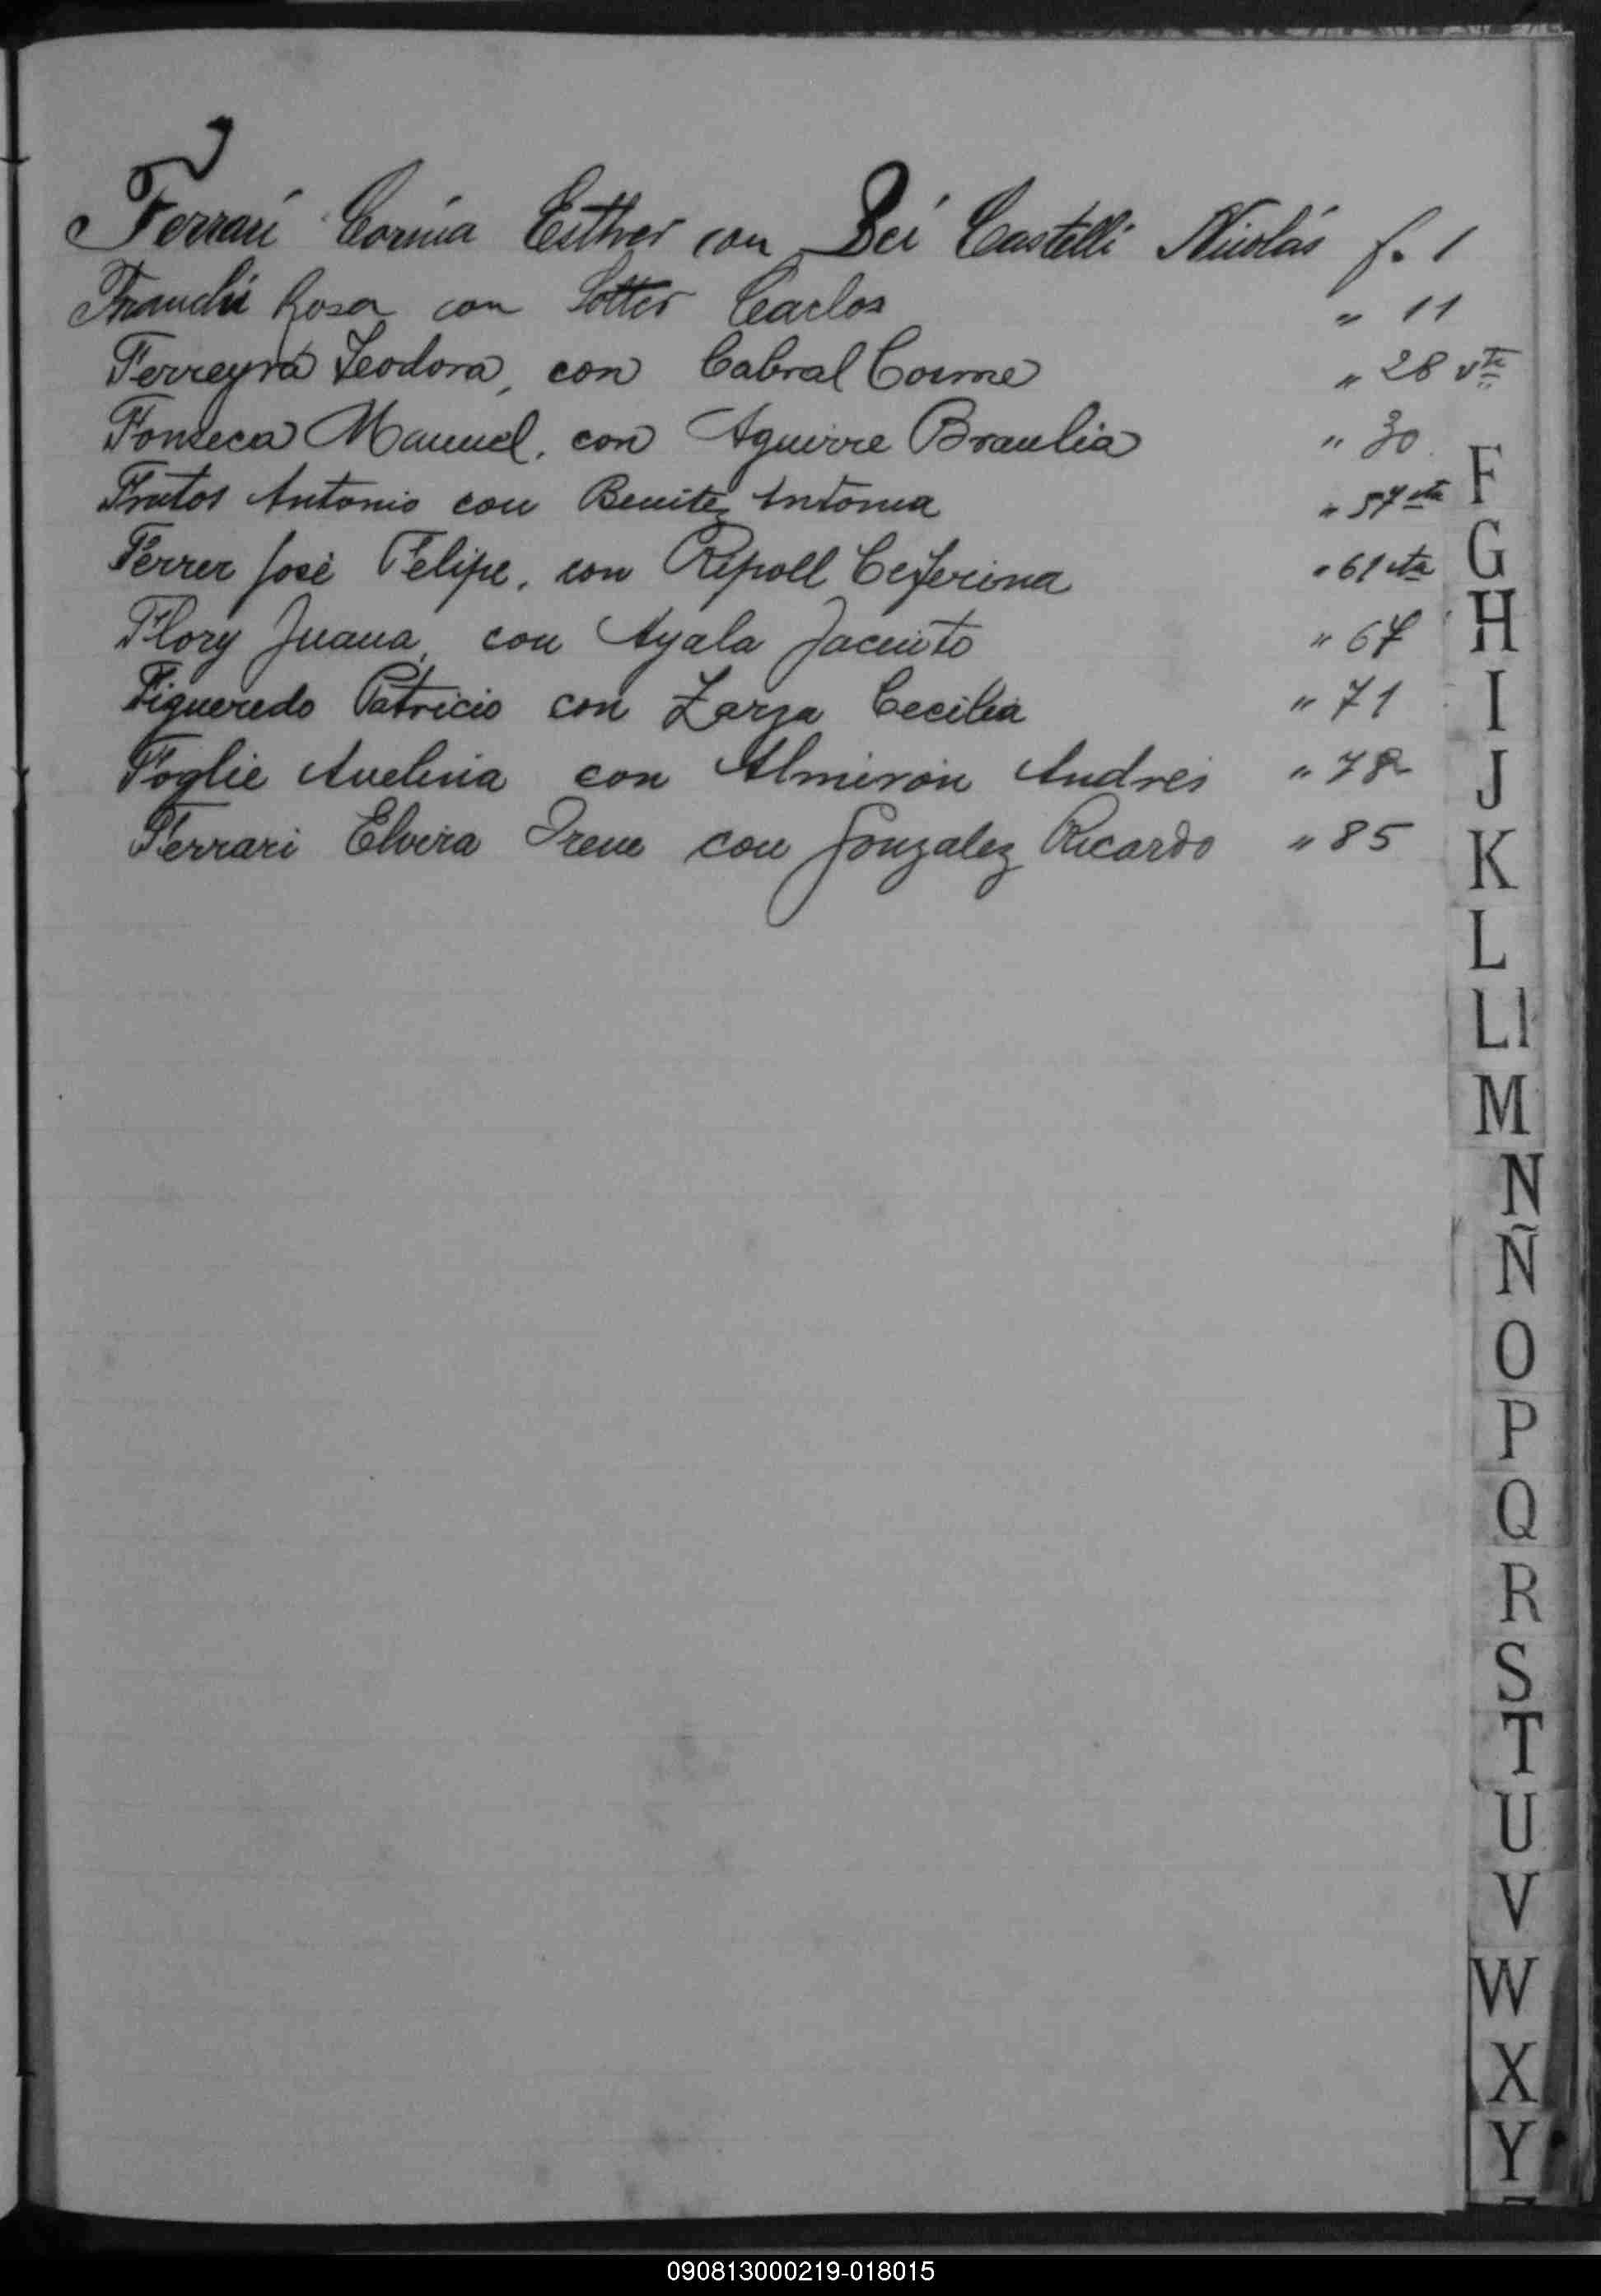 Ferrari Corina Esther con Bei Castelli Nicolás f. 1
Franchi Rosa con Sotter Carlos " 11
Ferreyra Teodora, con Cabral Cosme " 28 vta
Fonseca Manuel, con Aguirre Braulia " 30
Frutos Antonio con Benitez Antonia " 57 vta
Ferrer José Felipe, con Ripoll Ceferina " 61 vta
Flory Juana, con Ayala Jacinto " 67
Figueredo Patricio con Zarza Cecilia " 71
Foglie Avelina con Almirón Andrés " 78
Ferrari Elvira Irene con Gonzalez Ricardo " 85
F
G
H
I
J
K
L
Ll
M
N
Ñ
O
P
Q
R
S
T
U
V
W
X
Y
090813000219-018015